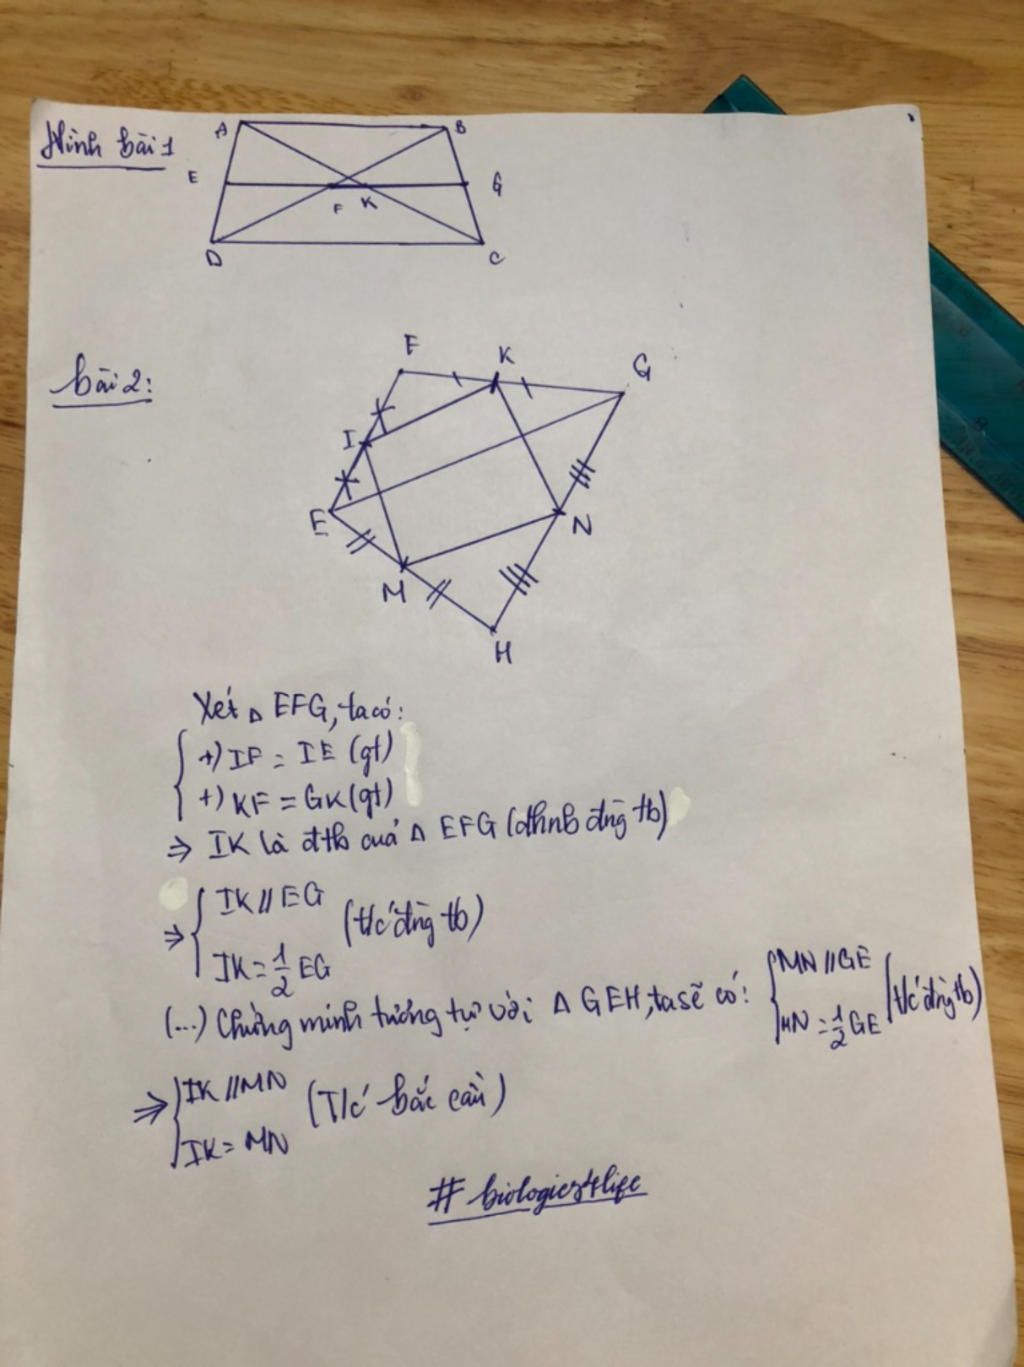 Hình bài 1
A B
E G
F K
D C
bài 2:
F K G
I
E N
M
H
Xét Δ EFG, ta có:
+) IF = IE (gt)
+) KF = GK (gt)
⇒ IK là đtb của Δ EFG (dhnb đng tb)
⇒ { IK // EG
IK = 1/2 EG (t/c đng tb)
(...) Chứng minh tương tự với Δ GEH, ta sẽ có: { MN // GE
MN = 1/2 GE (t/c đng tb)
⇒ { IK // MN
IK = MN (T/c bắc cầu)
# biologies4life